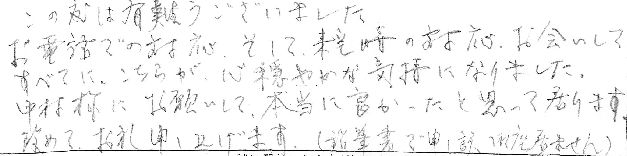 この度は有難うございました
お電話でのお対応、そして、来宅時のお対応、お会いして
すべてに、こちらが、心穏やかな気持になりました。
中村様にお願いして、本当に良かったと思って居ります
改めて、お礼申し上げます。(乱筆書で申し訳 御座居ません)